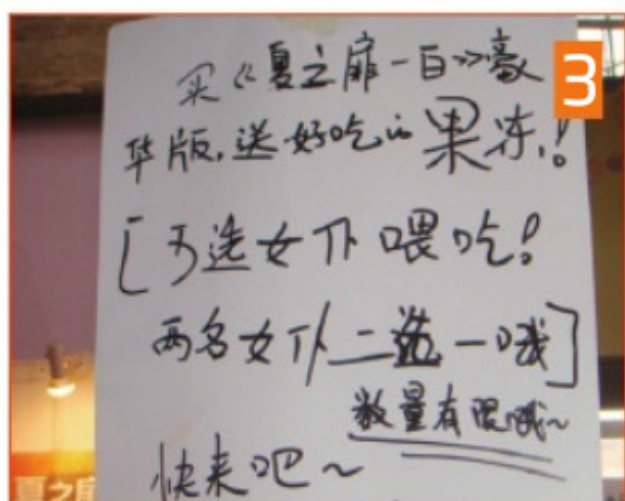 买《夏之扉-白》豪
华版,送好吃的果冻!
[可选女仆喂吃!
两名女仆二选一哦]
数量有限哦~
快来吧~
3
夏之扉